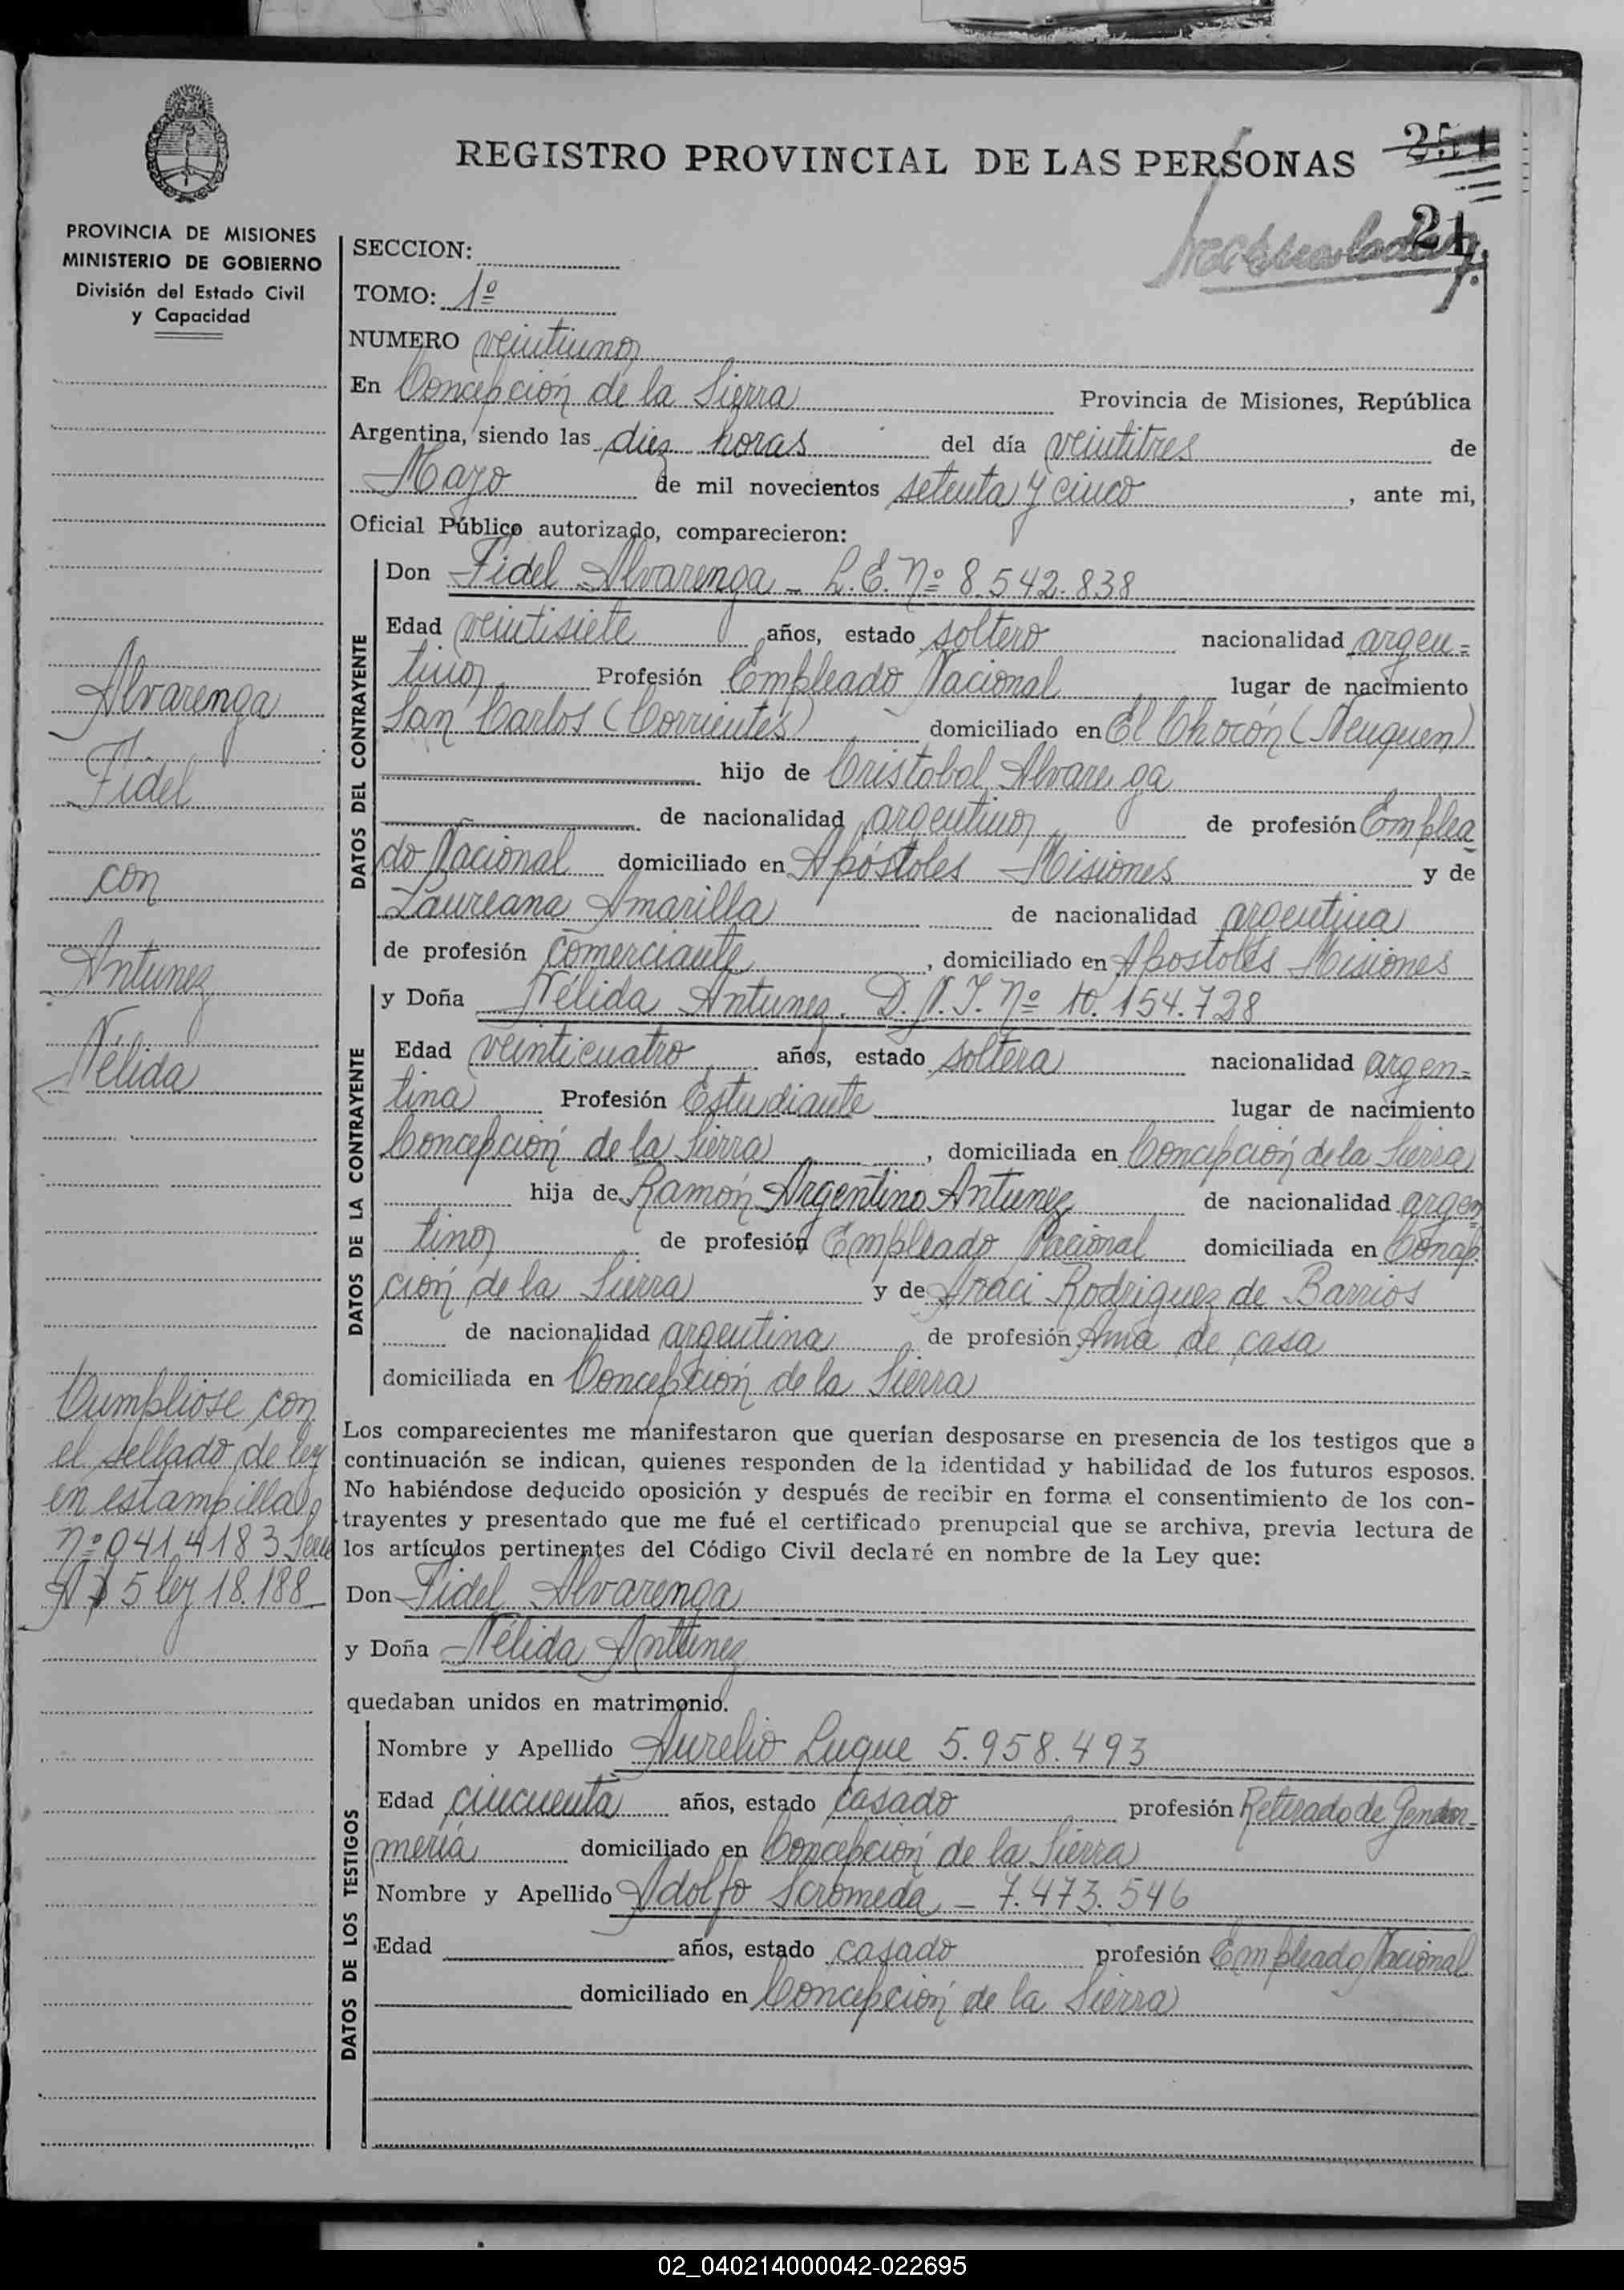 REGISTRO PROVINCIAL DE LAS PERSONAS
251
21
PROVINCIA DE MISIONES
MINISTERIO DE GOBIERNO
División del Estado Civil
y Capacidad
SECCION:
TOMO: 1º
NUMERO veintiuno
En Concepción de la Sierra Provincia de Misiones, República
Argentina, siendo las diez horas del día veintitres de
Mayo de mil novecientos setenta y cinco, ante mi,
Oficial Público autorizado, comparecieron:
DATOS DEL CONTRAYENTE
Don Fidel Alvarenga - L.E. Nº 8.542.838
Edad veintisiete años, estado soltero nacionalidad argen=
tino Profesión Empleado Nacional lugar de nacimiento
San Carlos (Corrientes) domiciliado en El Chocón (Neuquen)
hijo de Cristobal Alvare ga
de nacionalidad argentino de profesión Emplea
do Nacional domiciliado en Apóstoles Misiones y de
Laureana Amarilla de nacionalidad argentina
de profesión comerciante, domiciliado en Apostoles Misiones
DATOS DE LA CONTRAYENTE
y Doña Nélida Antunez. D.N.I. Nº 10.154.728
Edad veinticuatro años, estado soltera nacionalidad argen=
tina Profesión Estudiante lugar de nacimiento
Concepción de la Sierra, domiciliada en Concepción de la Sierra
hija de Ramón Argentino Antunez de nacionalidad argen
tino de profesión Empleado Nacional domiciliada en Concep
ción de la Sierra y de Araci Rodriguez de Barrios
de nacionalidad argentina de profesión Ama de casa
domiciliada en Concepción de la Sierra
Los comparecientes me manifestaron que querían desposarse en presencia de los testigos que a
continuación se indican, quienes responden de la identidad y habilidad de los futuros esposos.
No habiéndose deducido oposición y después de recibir en forma el consentimiento de los con-
trayentes y presentado que me fué el certificado prenupcial que se archiva, previa lectura de
los artículos pertinentes del Código Civil declaré en nombre de la Ley que:
Don Fidel Alvarenga
y Doña Nélida Antunez
quedaban unidos en matrimonio.
DATOS DE LOS TESTIGOS
Nombre y Apellido Aurelio Luque 5.958.493
Edad cincuenta años, estado casado profesión Retirado de Gendar=
mería domiciliado en Concepción de la Sierra
Nombre y Apellido Adolfo Scromeda - 7.473.546
Edad años, estado casado profesión Empleado Nacional
domiciliado en Concepción de la Sierra
Alvarenga
Fidel
con
Antunez
Nélida
Cumpliose con
el sellado de ley
en estampilla
Nº 0414183 Serie
A $ 5 ley 18.188
02_040214000042-022695